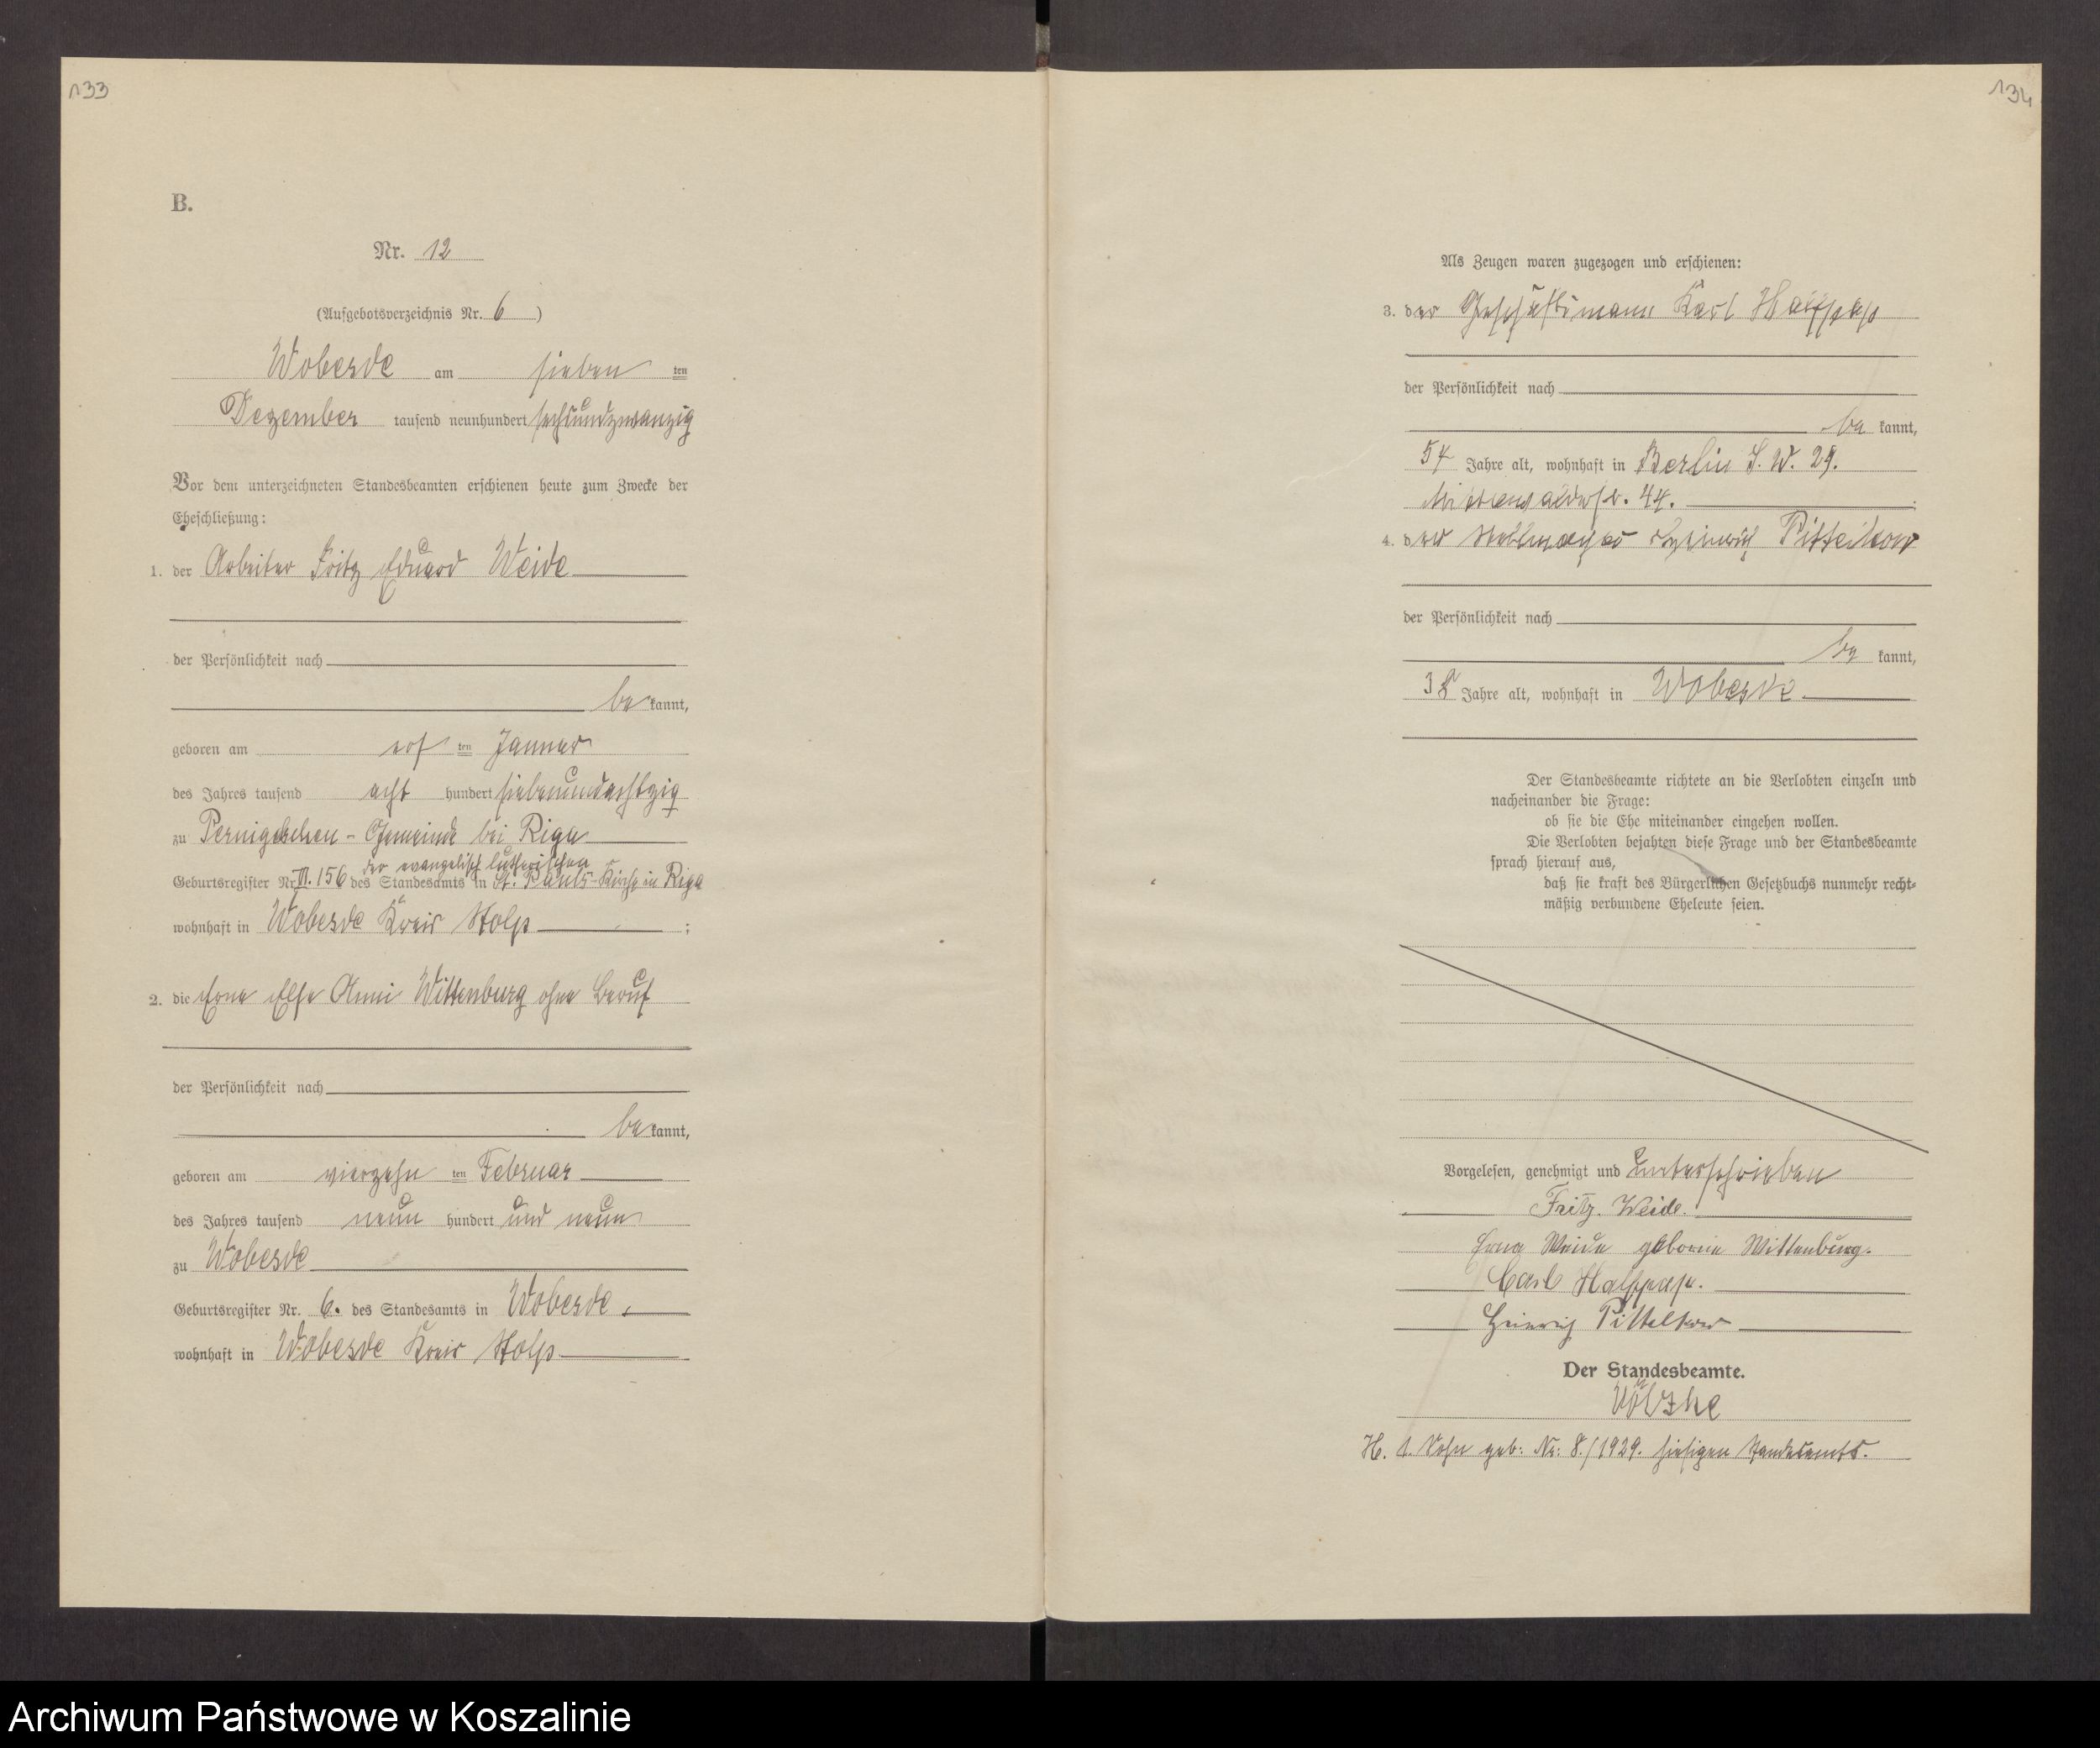 133
B.
Nr. 12
(Aufgebotsverzeichnis Nr. 6)
Wobesde am sieben ten
Dezember tausend neunhundert sechsundzwanzig
Vor dem unterzeichneten Standesbeamten erschienen heute zum Zwecke der
Eheschließung:
1. der Arbeiter Fritz Eduard Weide
der Persönlichkeit nach
be kannt,
geboren am ten Januar
des Jahres tausend acht hundert siebenundachtzig
zu Gemeinde bei Riga
der evangelisch lutherischen
Geburtsregister Nr. 156 des Standesamts in St. Pauls-Kirche in Riga
wohnhaft in Wobesde Kreis Stolp ;
2. die Erna Else Anni Wittenburg ohne Beruf
der Persönlichkeit nach
be kannt,
geboren am vierzehn ten Februar
des Jahres tausend neun hundert und neun
zu Wobesde
Geburtsregister Nr. 6. des Standesamts in Wobesde,
wohnhaft in Wobesde Kreis Stolp
134
Als Zeugen waren zugezogen und erschienen:
3. der Geschäftsmann Karl Halfpap
der Persönlichkeit nach
be kannt,
54 Jahre alt, wohnhaft in Berlin S. W. 29.
44. ;
4. der Heinrich Pittelkow
der Persönlichkeit nach
be kannt,
38 Jahre alt, wohnhaft in Wobesde.
Der Standesbeamte richtete an die Verlobten einzeln und
nacheinander die Frage:
ob sie die Ehe miteinander eingehen wollen.
Die Verlobten bejahten diese Frage und der Standesbeamte
sprach hierauf aus,
daß sie kraft des Bürgerlichen Gesetzbuchs nunmehr recht-
mäßig verbundene Eheleute seien.
Vorgelesen, genehmigt und unterschrieben
Fritz. Weide.
Erna Weide geborene Wittenburg.
Carl Halfpap.
Heinrich Pittelkow
Der Standesbeamte.
Völzke
H. 1. Sohn geb: Nr: 8./1929. hiesigen Standesamts.
Archiwum Państwowe w Koszalinie